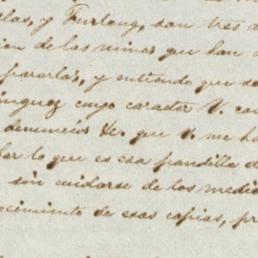 las, y Furlong, son tres a
cion de las minas que han
pararlas, y entiendo que se
inguez cuyo caracter V. con
denuncios &c. que V. me ha
ber lo que es esa pandilla d
sin cuidarse de los medio
ocimiento de esas copias, pr